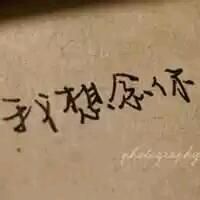 我想念你
photography